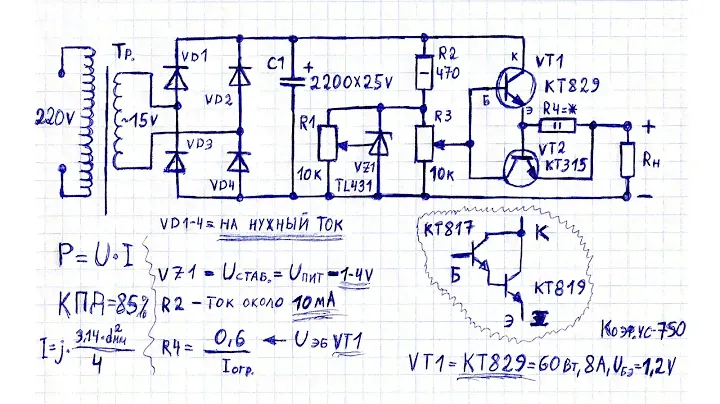 Тр.
220V
~15V
VD1
VD2
VD3
VD4
C1
+
2200×25V
R1
10к
VZ1
TL431
R2
470
R3
10к
К
Б
Э
VT1
КТ829
R4=*
VT2
КТ315
+
Rн
−
VD1-4= НА НУЖНЫЙ ТОК
P=U·I
КПД=85%
I=j·3.14·dмм²/4
VZ1 = Uстаб.=Uпит-1-4V
R2 - ТОК ОКОЛО 10МА
R4= 0,6/Iогр. ← Uэб VT1
КТ817
К
Б
КТ819
Э
Коэф.ус-750
VT1= КТ829=60Вт, 8А, Uбэ=1,2V